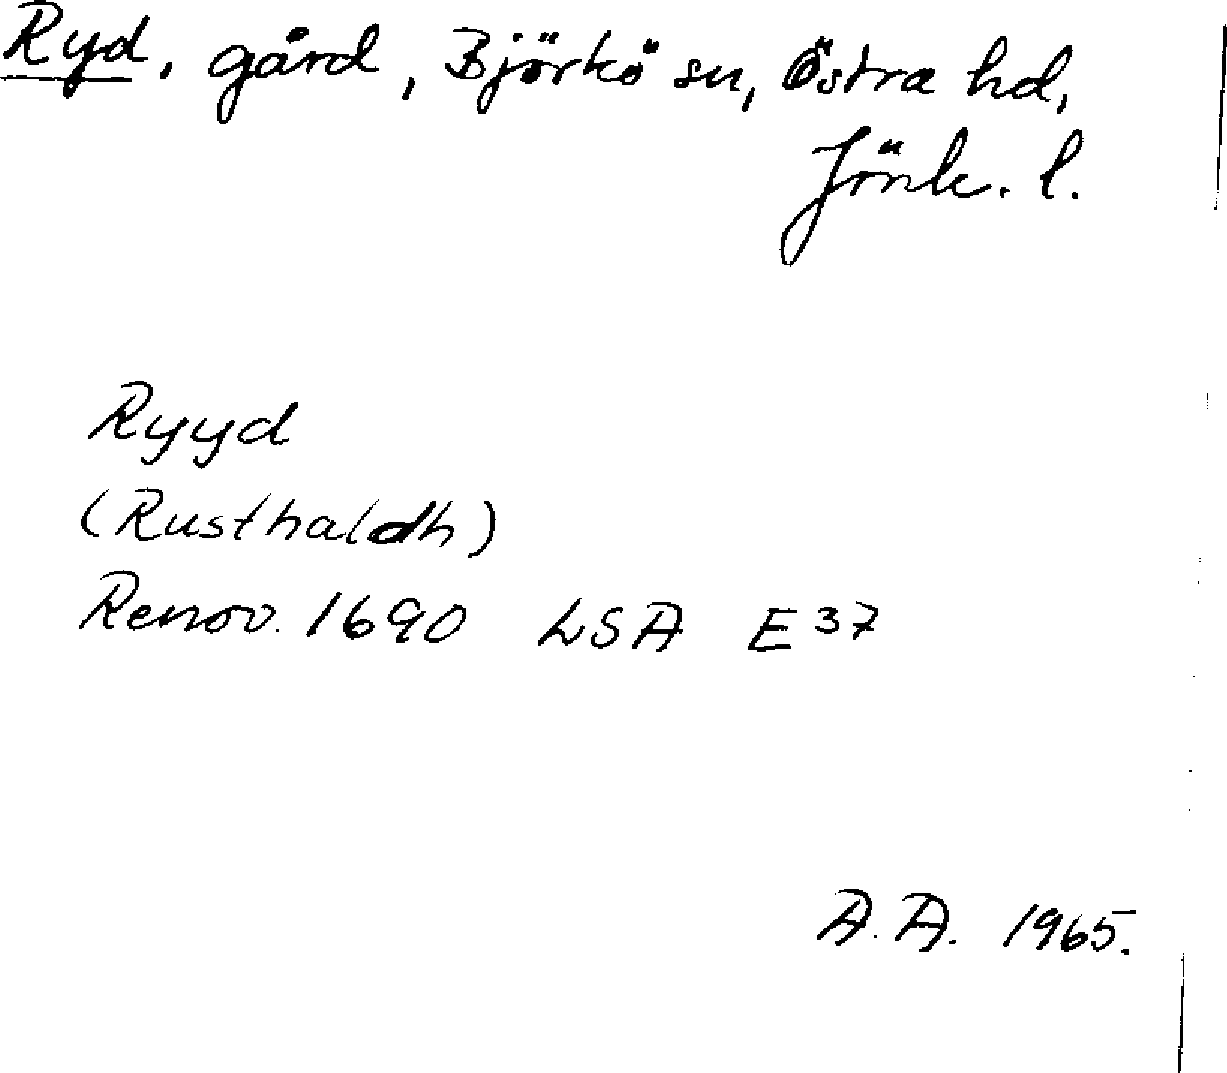 Ryd, gård, Björkö sn, Östra hd,
Jönk. l.
Ryyd
(Rusthaldh)
Renov. 1690 LSA E 37
A. A. 1965.